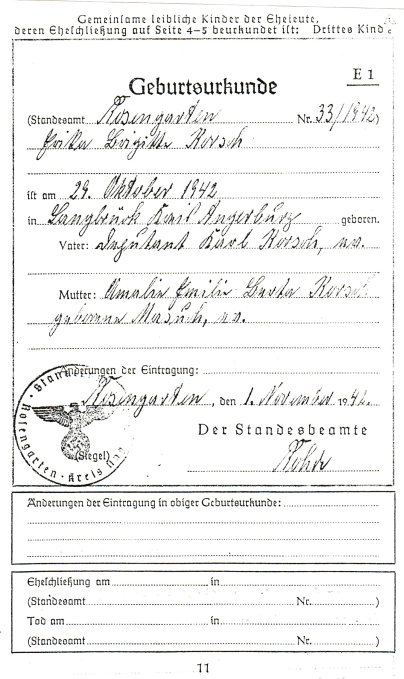 Gemeinsame leibliche Kinder der Eheleute,
deren Eheschließung auf Seite 4-5 beurkundet ist: Drittes Kind
E 1
Geburtsurkunde
(Standesamt Rosengarten Nr. 33/1942)
Erika Brigitte Korsch
ist am 29. Oktober 1942
in Langbrück Kreis Angerburg geboren.
Vater: Deputant Karl Korsch, ev.
Mutter: Amalie Emilie Berta Korsch
geborene Masuch, ev.
Änderungen der Eintragung:
Rosengarten, den 1. November 1942.
Der Standesbeamte
(Siegel)
Rosengarten · Kreis
Änderungen der Eintragung in obiger Geburtsurkunde:
Eheschließung am in
(Standesamt Nr. )
Tod am in
(Standesamt Nr. )
11